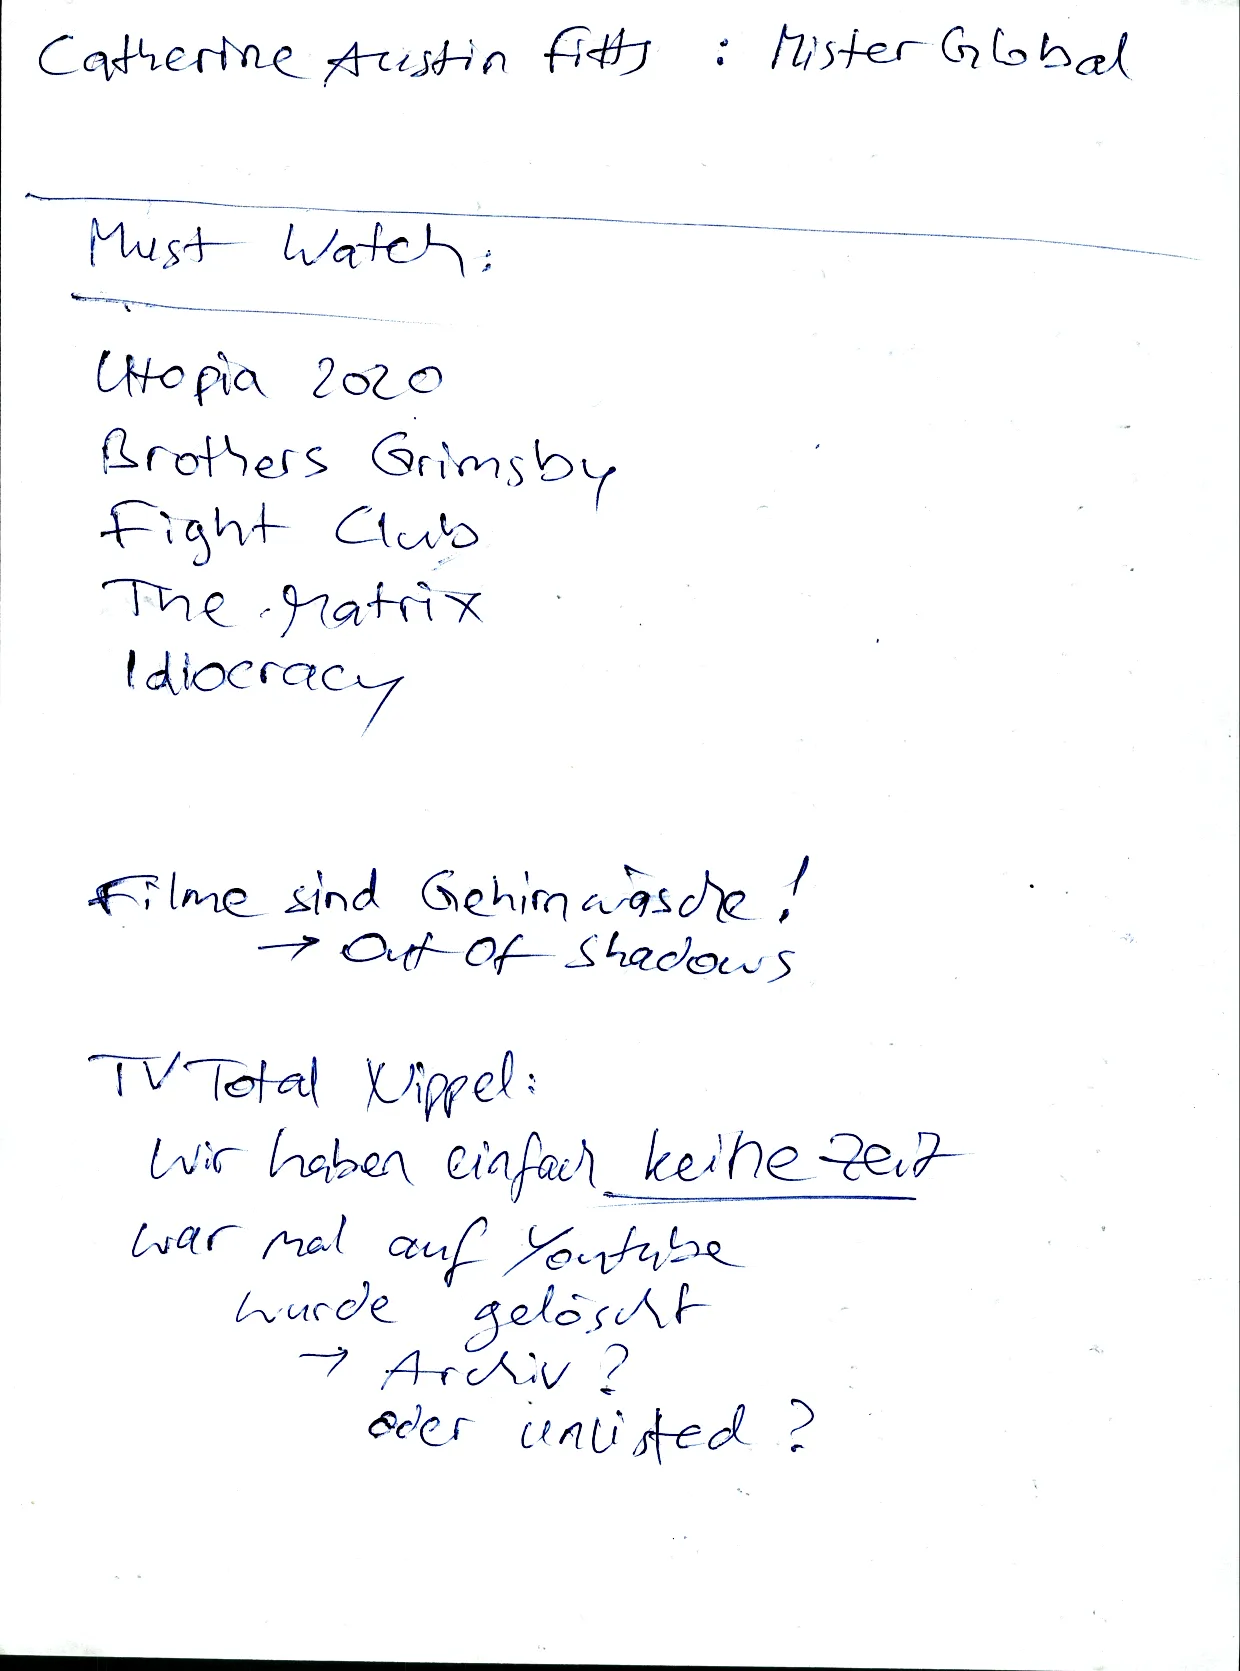 Catherine Austin Fitts : Mister Global
Must Watch:
Utopia 2020
Brothers Grimsby
Fight Club
The Matrix
Idiocracy
Filme sind Gehirnwäsche!
→ Out Of Shadows
TV Total Nippel:
Wir haben einfach keine Zeit
war mal auf Youtube
wurde gelöscht
→ Archiv?
oder unlisted?